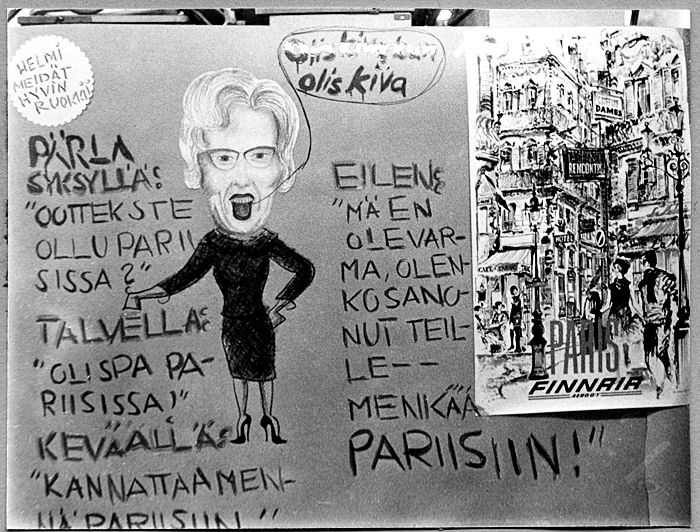 HELMI
MEIDÄT
HYVIN
RUOKKII!
olis kiva, kun
olis kiva
PÄRLA
SYKSYLLÄ:
"OOTTEKSTE
OLLU PARII
SISSA?"
TALVELLA:
"OLISPA PA-
RIISISSA!"
KEVÄÄLLÄ:
"KANNATTAA MEN-
NÄ PARIISIIN "
EILEN:
"MÄ EN
OLE VAR-
MA, OLEN-
KO SANO-
NUT TEIL-
LE--
MENKÄÄ
PARIISIIN!"
DAMES
RENCONTRE
HOTEL
PARIS
FINNAIR